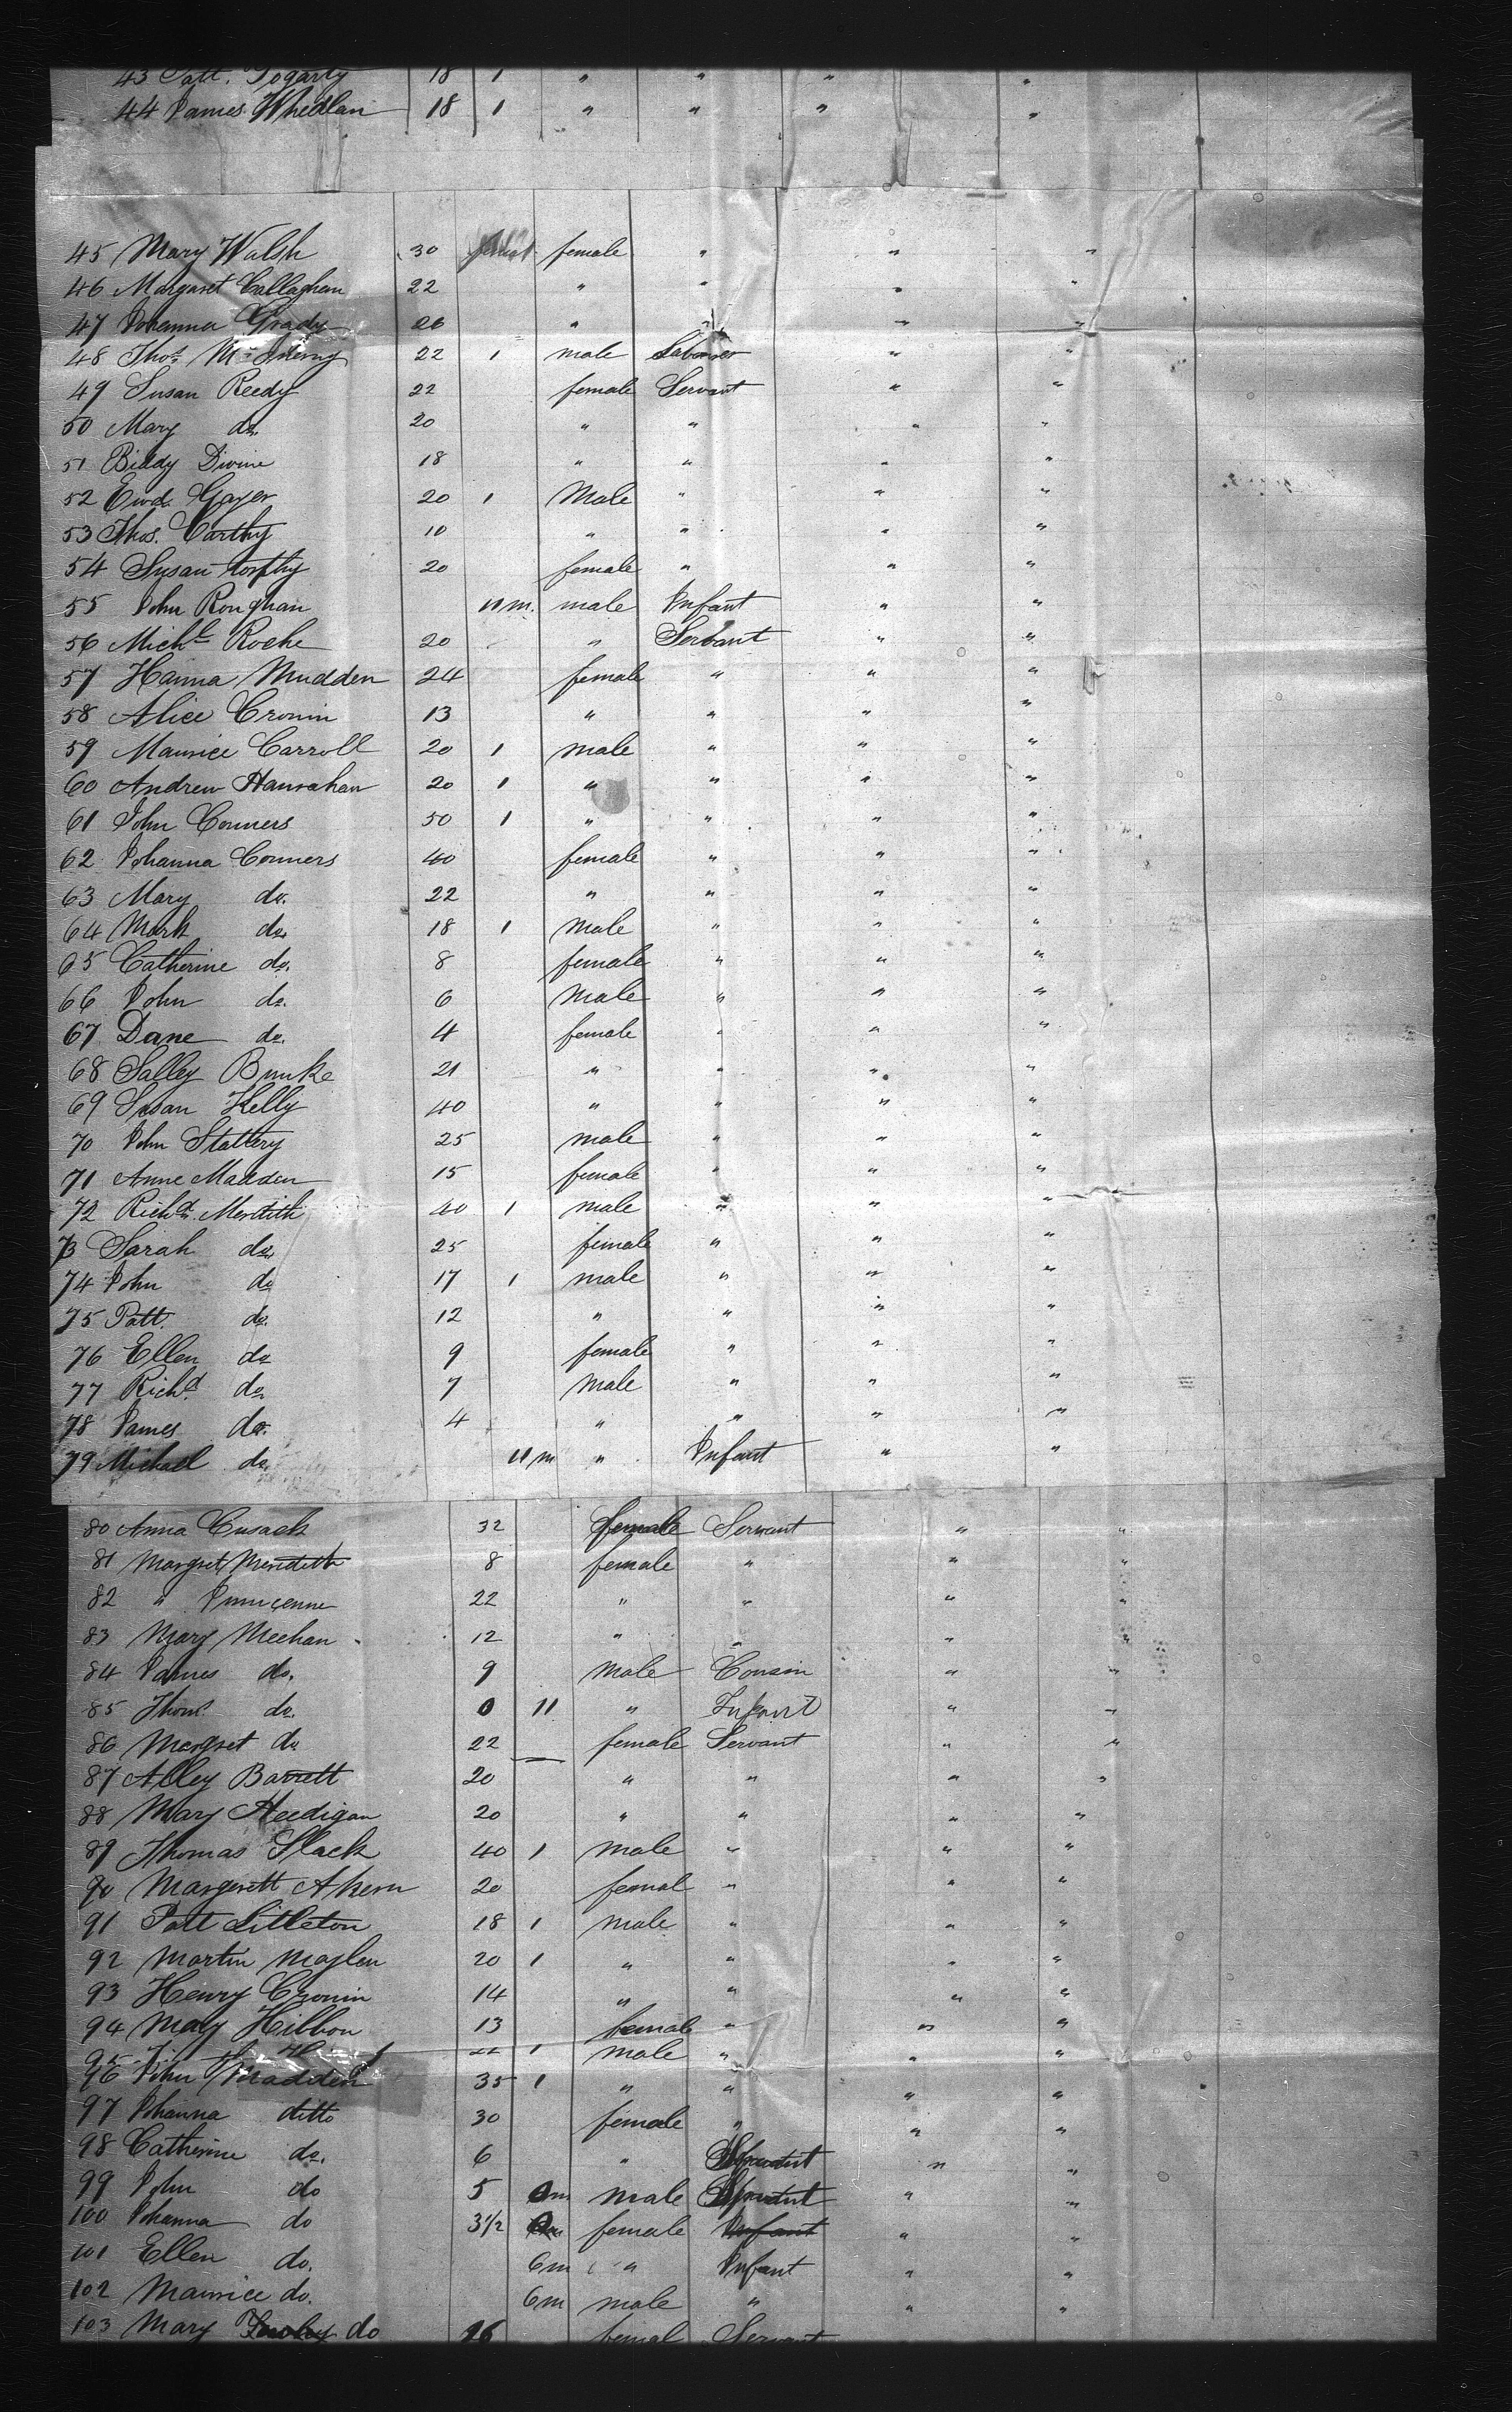 43 Patt. Fogarty 18 1 " " " "
44 James Whedlan 18 1 " " " "
45 Mary Walsh 30 female " " "
46 Margaret Callaghan 22 " " " "
47 Johanna Grady 26 " " " "
48 Thos. 22 1 male Laborer " "
49 Susan Reedy 22 female Servant " "
50 Mary do. 20 " " " "
51 Biddy Divine 18 " " " "
52 Ewd. Gayer 20 1 Male " " "
53 Thos. Carthy 10 " " " "
54 Susan 20 female " " "
55 John Roughan 11 m. male Infant " "
56 Michl. Roche 20 " Servant " "
57 Hanna Mudden 24 female " " "
58 Alice Cronin 13 " " " "
59 Maurice Carroll 20 1 male " " "
60 Andrew Hanrahan 20 1 " " " "
61 John Conners 50 1 " " " "
62 Johanna Conners 40 female " " "
63 Mary do. 22 " " " "
64 Mark do. 18 1 Male " " "
65 Catherine do. 8 female " " "
66 John do. 6 Male " " "
67 Dane do. 4 female " " "
68 Salley Burke 21 " " " "
69 Susan Kelly 40 " " " "
70 John Stattery 25 male " " "
71 Anne Madden 15 female " " "
72 Richd. Meridith 40 1 male " " "
73 Sarah do. 25 female " " "
74 John do 17 1 male " " "
75 Patt. do. 12 " " " "
76 Ellen do 9 female " " "
77 Richd. do. 7 Male " " "
78 James do. 4 " " " "
79 Michael do. 11 m " Infant " "
80 Anna Cusack 32 female Servant " "
81 Margret Meridith 8 female " " "
82 " 22 " " " "
83 Mary Meehan 12 " " " "
84 James do. 9 Male Cousin " "
85 Thoms. do. 0 11 " Infant " "
86 Margret do 22 female Servant " "
87 Alley Barrett 20 " " " "
88 Mary Heedigan 20 " " " "
89 Thomas Slack 40 1 male " " "
90 Margerett Ahern 20 femal " " "
91 Patt Littleton 18 1 male " " "
92 Martin Maylen 20 1 " " " "
93 Henry Cronin 14 " " " "
94 May Hilbon 13 femal " " "
95 1 male " " "
96 John Madden 35 1 " " " "
97 Johanna ditto 30 female " " "
98 Catherine do. 6 " " "
99 John do 5 male " "
100 Johanna do 3 1/2 female Infant " "
101 Ellen do. 6 m " Infant " "
102 Maurice do. 6 m male " " "
103 Mary do 26 femal Servant